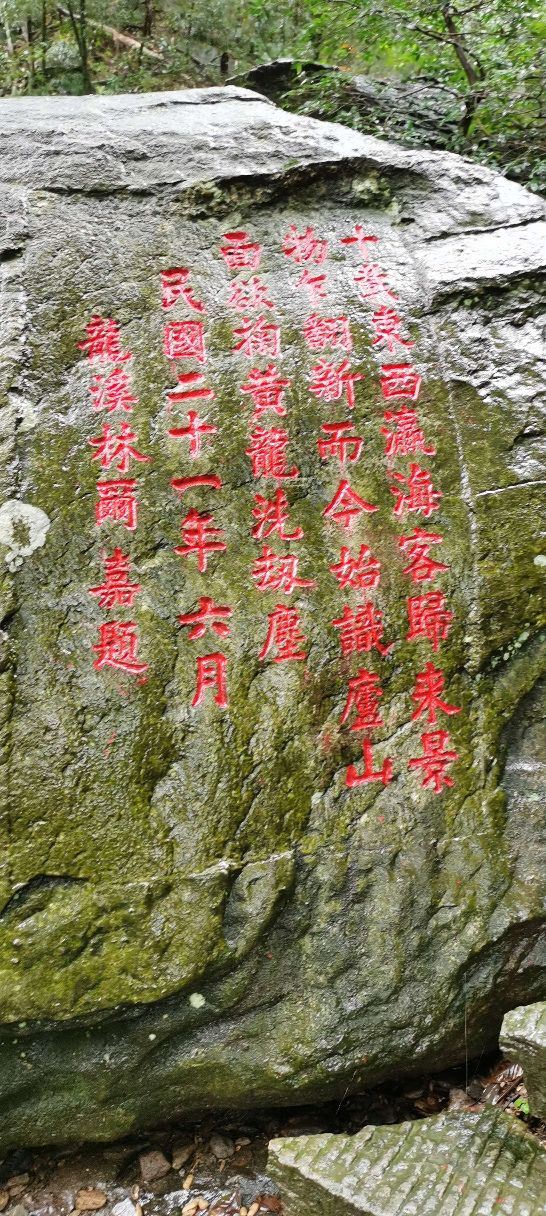 十載東西瀛海客歸來景
物乍翻新而今始識廬山
面欲掬黄龍洗劫塵
民國二十一年六月
龍溪林爾嘉題